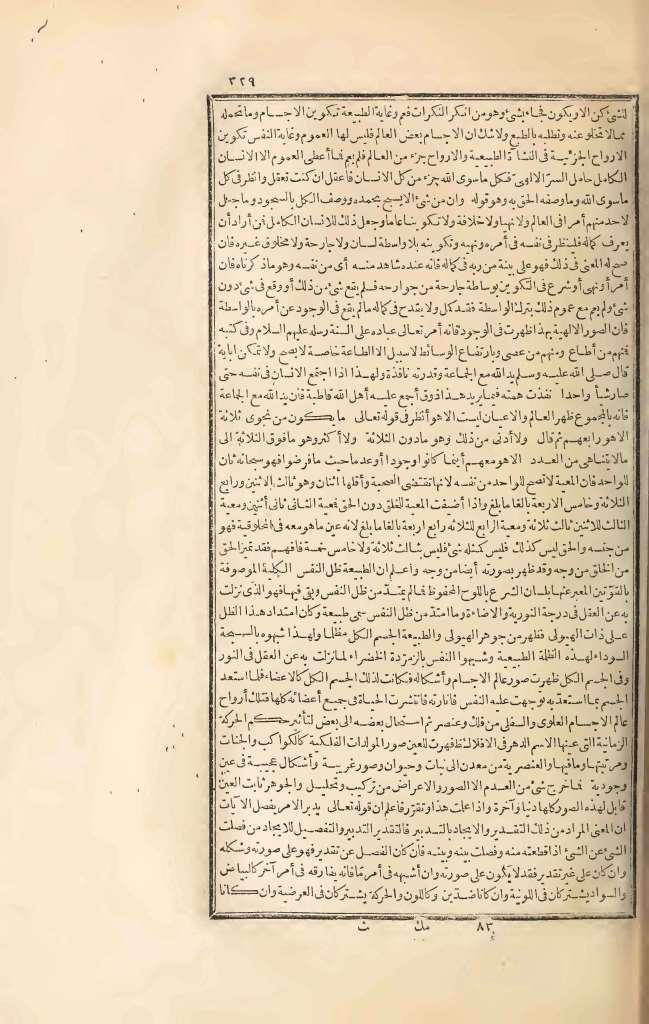 ٣٢٩
للشئ كن الا ويكون فجاء بشئ وهو من أنكر النكرات فعم وغاية الطبيعة تكوين الاجسام وما تحمله
مما لا تخلو عنه وتطلبه بالطبع ولا شك ان الاجسام بعض العالم فليس لها العموم وغاية النفس تكوين
الارواح الجزئية فى النشآت الطبيعية والارواح جزء من العالم فلم يعم فما أعطى العموم الا الانسان
الكامل حامل السر الالهى فكل ما سوى الله جزء من كل الانسان فاعقل ان كنت تعقل وانظر فى كل
ما سوى الله وما وصفه الحق به وهو قوله وان من شئ الا يسبح بحمده ووصف الكل بالسجود وما جعل
لاحد منهم أمرا فى العالم ولا نهيا ولا خلافة ولا تكوينا عاما وجعل ذلك للانسان الكامل فمن أراد أن
يعرف كماله فلينظر فى نفسه فى أمره ونهيه وتكوينه بلا واسطة لسان ولا جارحة ولا مخلوق غيره فان
صح له المعنى فى ذلك فهو على بينة من ربه فى كماله فانه عنده شاهد منه أى من نفسه وهو ما ذكرناه فان
أمر أو نهى أو شرع فى التكوين بوساطة جارحة من جوارحه فلم يقع شئ من ذلك أو وقع فى شئ دون
شئ ولم يعم مع عموم ذلك بترك الواسطة فقد كمل ولا يقدح فى كماله ما لم يقع فى الوجود عن أمره بالواسطة
فان الصور الالهية بهذا ظهرت فى الوجود فانه أمر تعالى عباده على ألسنة رسله عليهم السلام وفى كتبه
فمنهم من أطاع ومنهم من عصى وبارتفاع الوسائط لا سبيل الا الطاعة خاصة لا يصح ولا تمكن اباية
قال صلى الله عليه وسلم يد الله مع الجماعة وقدرته نافذة ولهذا اذا اجتمع الانسان فى نفسه حتى
صار شيأ واحدا نفذت همته فيما يريد وهذا ذوق أجمع عليه أهل الله قاطبة فان يد الله مع الجماعة
فانه بالمجموع ظهر العالم والاعيان ليست الا هو أنظر فى قوله تعالى ما يكون من نجوى ثلاثة
الا هو رابعهم ثم قال ولا أدنى من ذلك وهو ما دون الثلاثة ولا أكثر وهو ما فوق الثلاثة الى
ما لا يتناهى من العدد الا هو معهم أينما كانوا وجودا أو عدما حيث ما فرضوا فهو سبحانه ثان
للواحد فان المعية لا تصح للواحد من نفسه لانها تقتضى الصحبة وأقلها اثنان وهو ثالث الاثنين ورابع
الثلاثة وخامس الاربعة بالغا ما بلغ واذا أضيفت المعية للخلق دون الحق فمعية الثانى ثانى اثنين ومعية
الثالث للاثنين ثالث ثلاثة ومعية الرابع للثلاثة رابع اربعة بالغا ما بلغ لانه عين ما هو معه فى المخلوقية فهو
من جنسه والحق ليس كذلك فليس كمثله شئ فليس بثالث ثلاثة ولا خامس خمسة فافهم فقد تميز الحق
من الخلق من وجه وقد ظهر بصورته أيضا من وجه واعلم ان الطبيعة ظل النفس الكلية الموصوفة
بالقوتين المعبر عنها بلسان الشرع باللوح المحفوظ فما لم يمتد من ظل النفس وبقى فيها فهو الذى نزلت
به عن العقل فى درجة النورية والاضاءة وما امتد من ظل النفس سمى طبيعة وكان امتداد هذا الظل
على ذات الهيولى فظهر من جوهر الهيولى والطبيعة الجسم الكل مظلما ولهذا شبهوه بالسبحة
السوداء لهذه الظلمة الطبيعية وشبهوا النفس بالزمردة الخضراء لما نزلت به عن العقل فى النور
وفى الجسم الكل ظهرت صور عالم الاجسام وأشكاله فكانت لذلك الجسم الكل كالاعضاء فلما استعد
الجسم بما استعد به توجهت عليه النفس فانارته فانتشرت الحياة فى جميع أعضائه كلها فتلك أرواح
عالم الاجسام العلوى والسفلى من فلك وعنصر ثم استحال بعضه الى بعض لتأثير حكم الحركة
الزمانية التى عينها الاسم الدهر فى الافلاك فظهرت للعين صور المولدات الفلكية كالكواكب والجنات
ومرتبتها وما فيها والعنصرية من معدن الى نبات وحيوان وصور غريبة وأشكال عجيبة فى عين
وجودية فما خرج شئ من العدم الا الصور والاعراض من تركيب وتحليل والجوهر ثابت العين
قابل لهذه الصور كلها دنيا وآخرة واذا علمت هذا وتقرر فاعلم ان قوله تعالى يدبر الامر يفصل الآيات
ان المعنى المراد من ذلك التقدير والايجاد بالتدبير فالتقدير التدبير والتفصيل للايجاد من فصلت
الشئ عن الشئ اذا قطعته منه وفصلت بينه وبينه فان كان الفصل عن تقدير فهو على صورته وشكله
وان كان على غير تقدير فقد لا يكون على صورته وان أشبهه فى أمر ما فانه يفارقه فى أمر آخر كالبياض
والسواد يشتركان فى اللونية وان كانا ضدين وكاللون والحركة يشتركان فى العرضية وان كانا
٨٣ مك ث